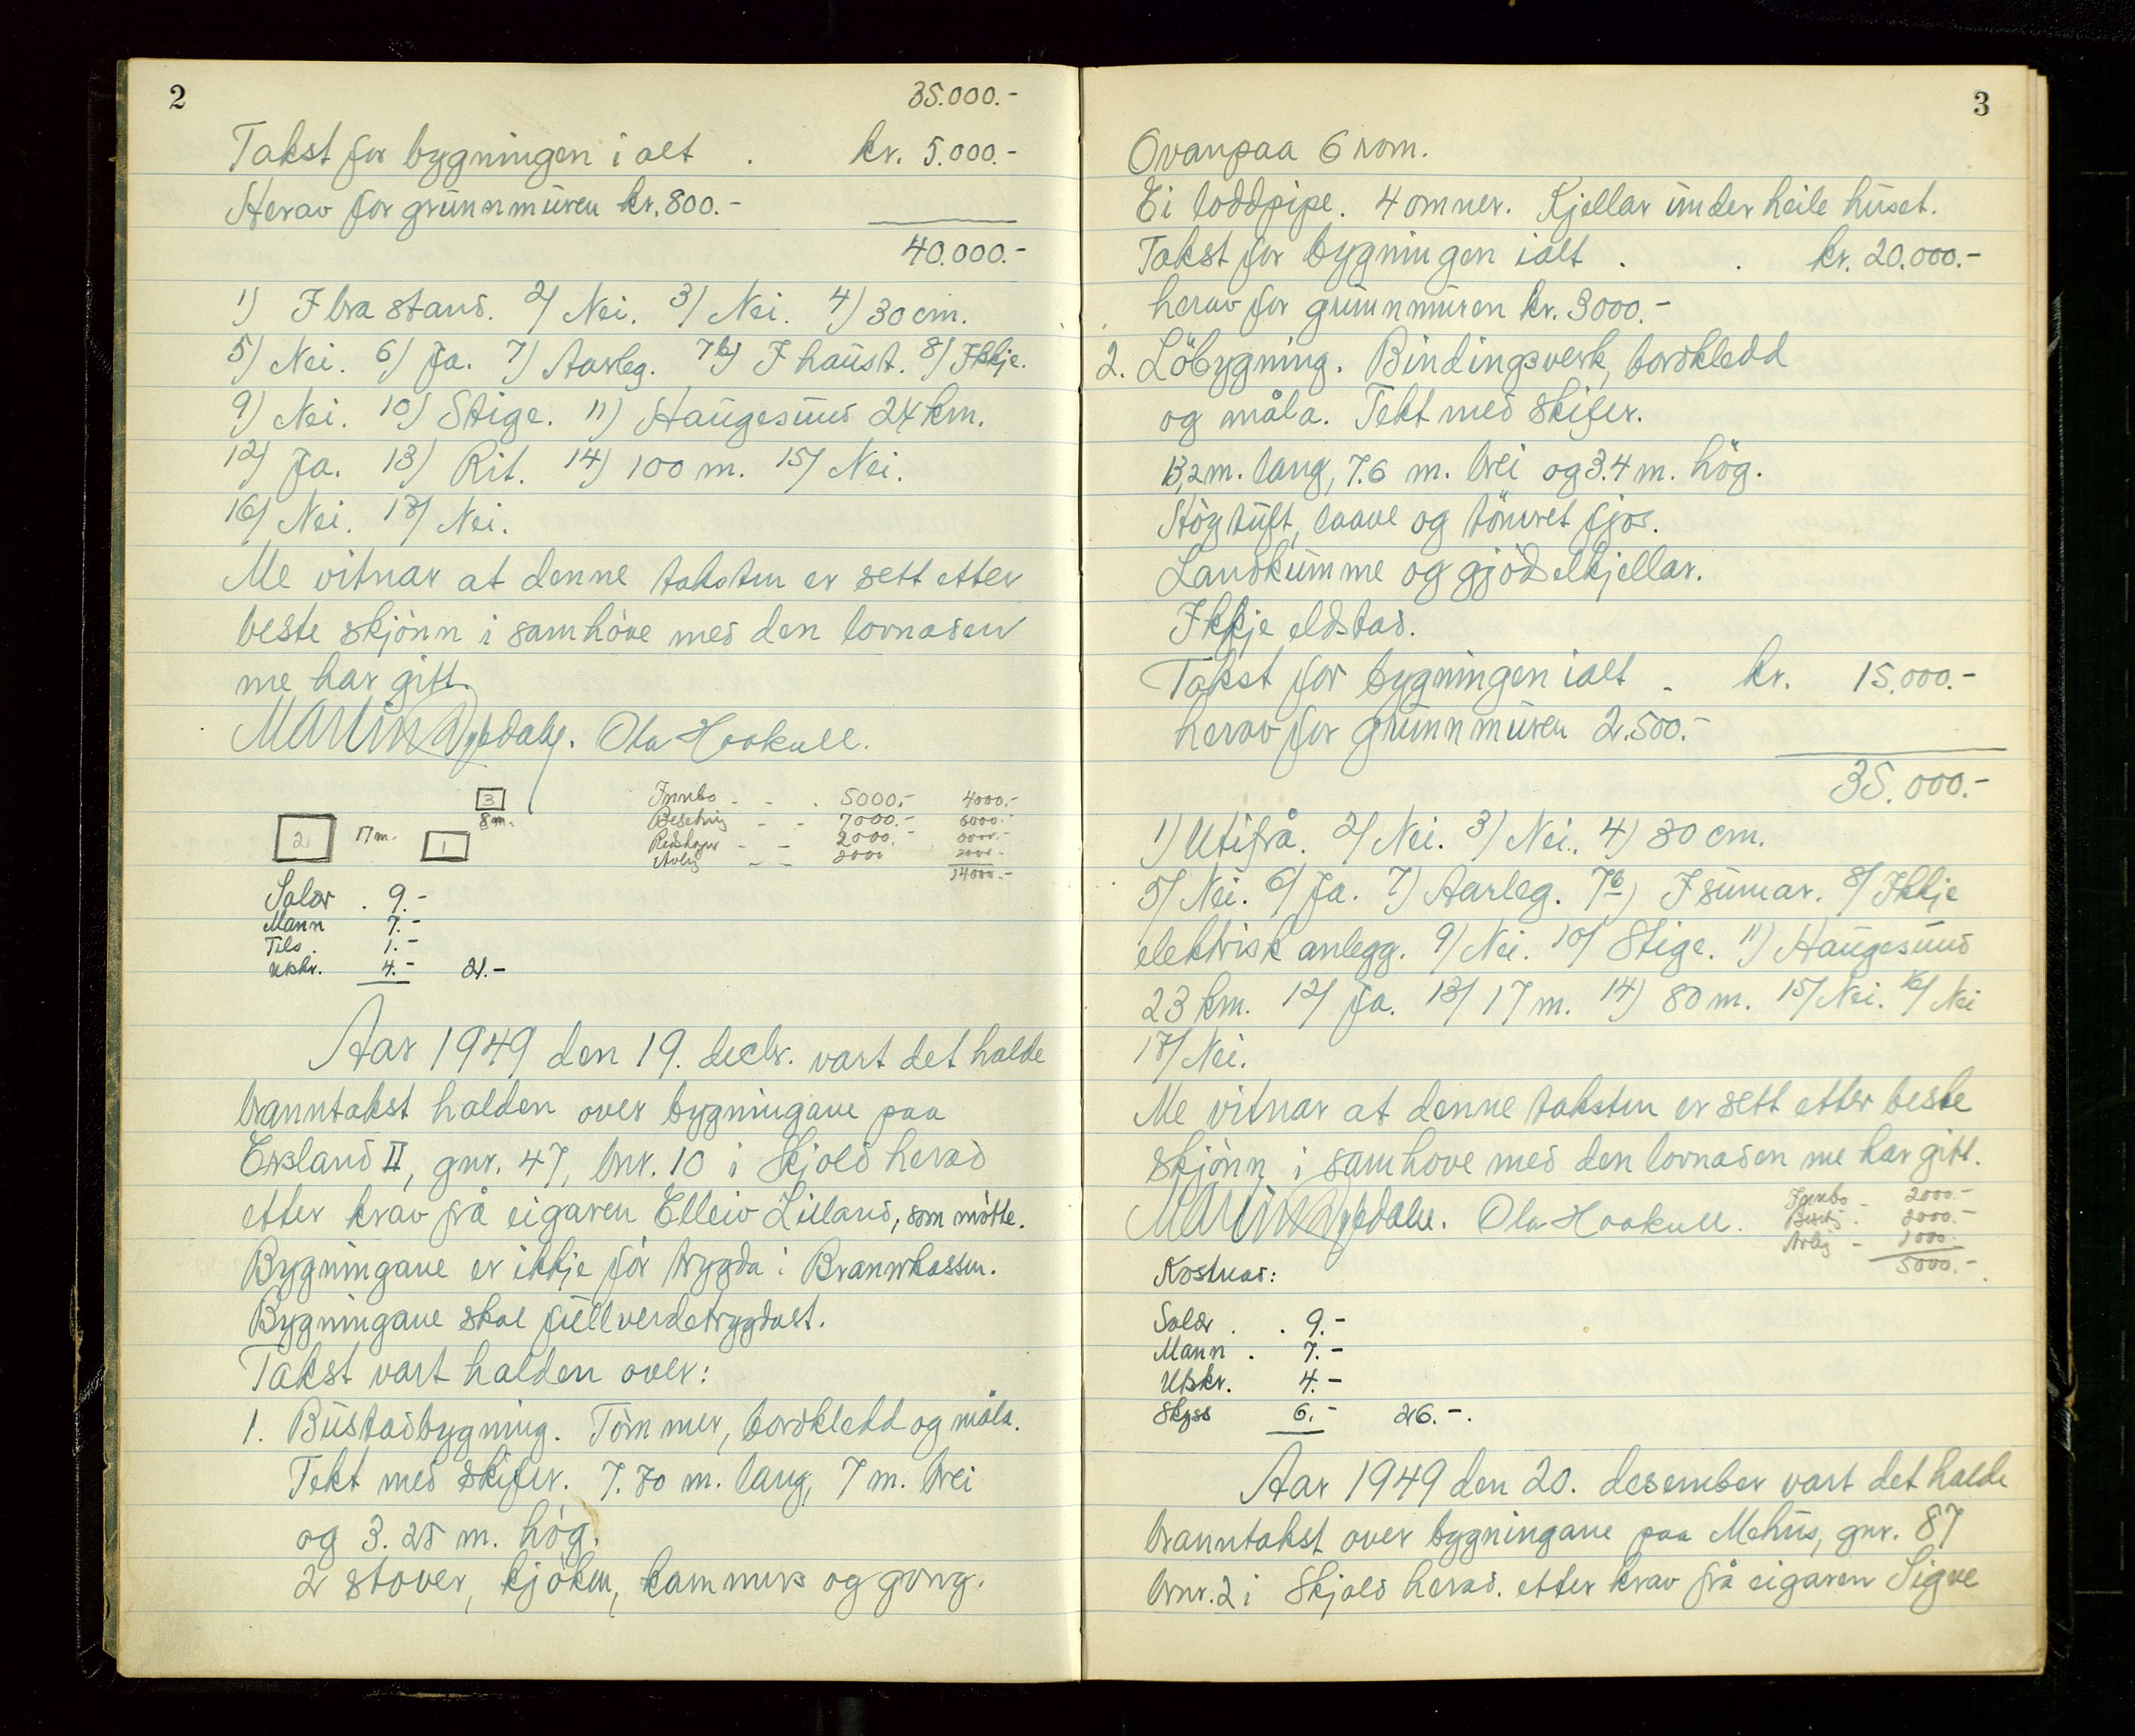 2
35.000.-
Takst for bygningen i alt . kr. 5.000.-
Herav for grunnmuren kr. 800.-
40.000.-
1) I bra stand. 2) Nei. 3) Nei. 4) 30 cm.
5) Nei. 6) Ja. 7) Aarleg. 7b) I haust. 8) Ikkje.
9) Nei. 10) Stige. 11) Haugesund 24 km.
12) Ja. 13) Rit. 14) 100 m. 15) Nei.
16) Nei. 17) Nei.
Me vitnar at denne taksten er sett etter
beste skjönn i samhöve med den lovnaden
me har gitt.
Martin Ola Haakull.
3
8 m.
2 17 m. 1
Innbo - - . 5000.- 4000.-
- - 7000.- 6000.-
- - 2000.-
Avling - - 2000 2000.-
14000.-
Salær . 9.-
Mann 7.-
Tils. 1.-
Utskr. 4.- 21.-
Aar 1949 den 19. decbr. vart det halde
branntakst halden over bygningane paa
Erland II, gnr. 47, bnr. 10 i Skjold herad
etter krav frå eigaren Elleiv Lilland, som mötte.
Bygningane er ikkje för trygda i Brannkassen.
Bygningane skal fullverdetrygdast.
Takst vart halden over:
1. Bustadbygning. Tömmer, bordkledd og måla.
Tekt med skifer. 7.70 m. lang, 7 m. brei
og 3.25 m. hög.
2 stover, kjöken, kammers og gong.
3
Ovanpaa 6 rom.
Ei loddpipe. 4 omner. Kjellar under heile huset.
Takst for bygningen ialt . . kr. 20.000.-
herav for grunnmuren kr. 3000.-
2. Löbygning. Bindingsverk, bordkledd
og måla. Tekt med skifer.
13,2 m. lang, 7.6 m. brei og 3.4 m. hög.
Högtuft, laave og tömret fjos.
Landkumme og gjödselkjellar.
Ikkje eldstad.
Takst for bygningen ialt - kr. 15.000.-
herav for grunnmuren 2.500.-
35.000.-
1) Utifrå. 2) Nei. 3) Nei. 4) 30 cm.
5) Nei. 6) Ja. 7) Aarleg. 7b) I sumar. 8) Ikkje
elektrisk anlegg. 9) Nei. 10) Stige. 11) Haugesund
23 km. 12) Ja. 13) 17 m. 14) 80 m. 15) Nei. 16) Nei
17) Nei.
Me vitnar at denne taksten er sett etter beste
skjönn i samhove med den lovnaden me har gitt.
Martin Ola Haakull.
Innbo - 2000.-
2000.-
Avling - 1000.
5000.-
Kostnad:
Salær . . 9.-
Mann . 7.-
Utskr. 4.-
Skyss 6.- 26.-.
Aar 1949 den 20. desember vart det halde
branntakst over bygningane paa Mehus, gnr. 87
bnr. 2 i Skjold herad. etter krav frå eigaren Signe